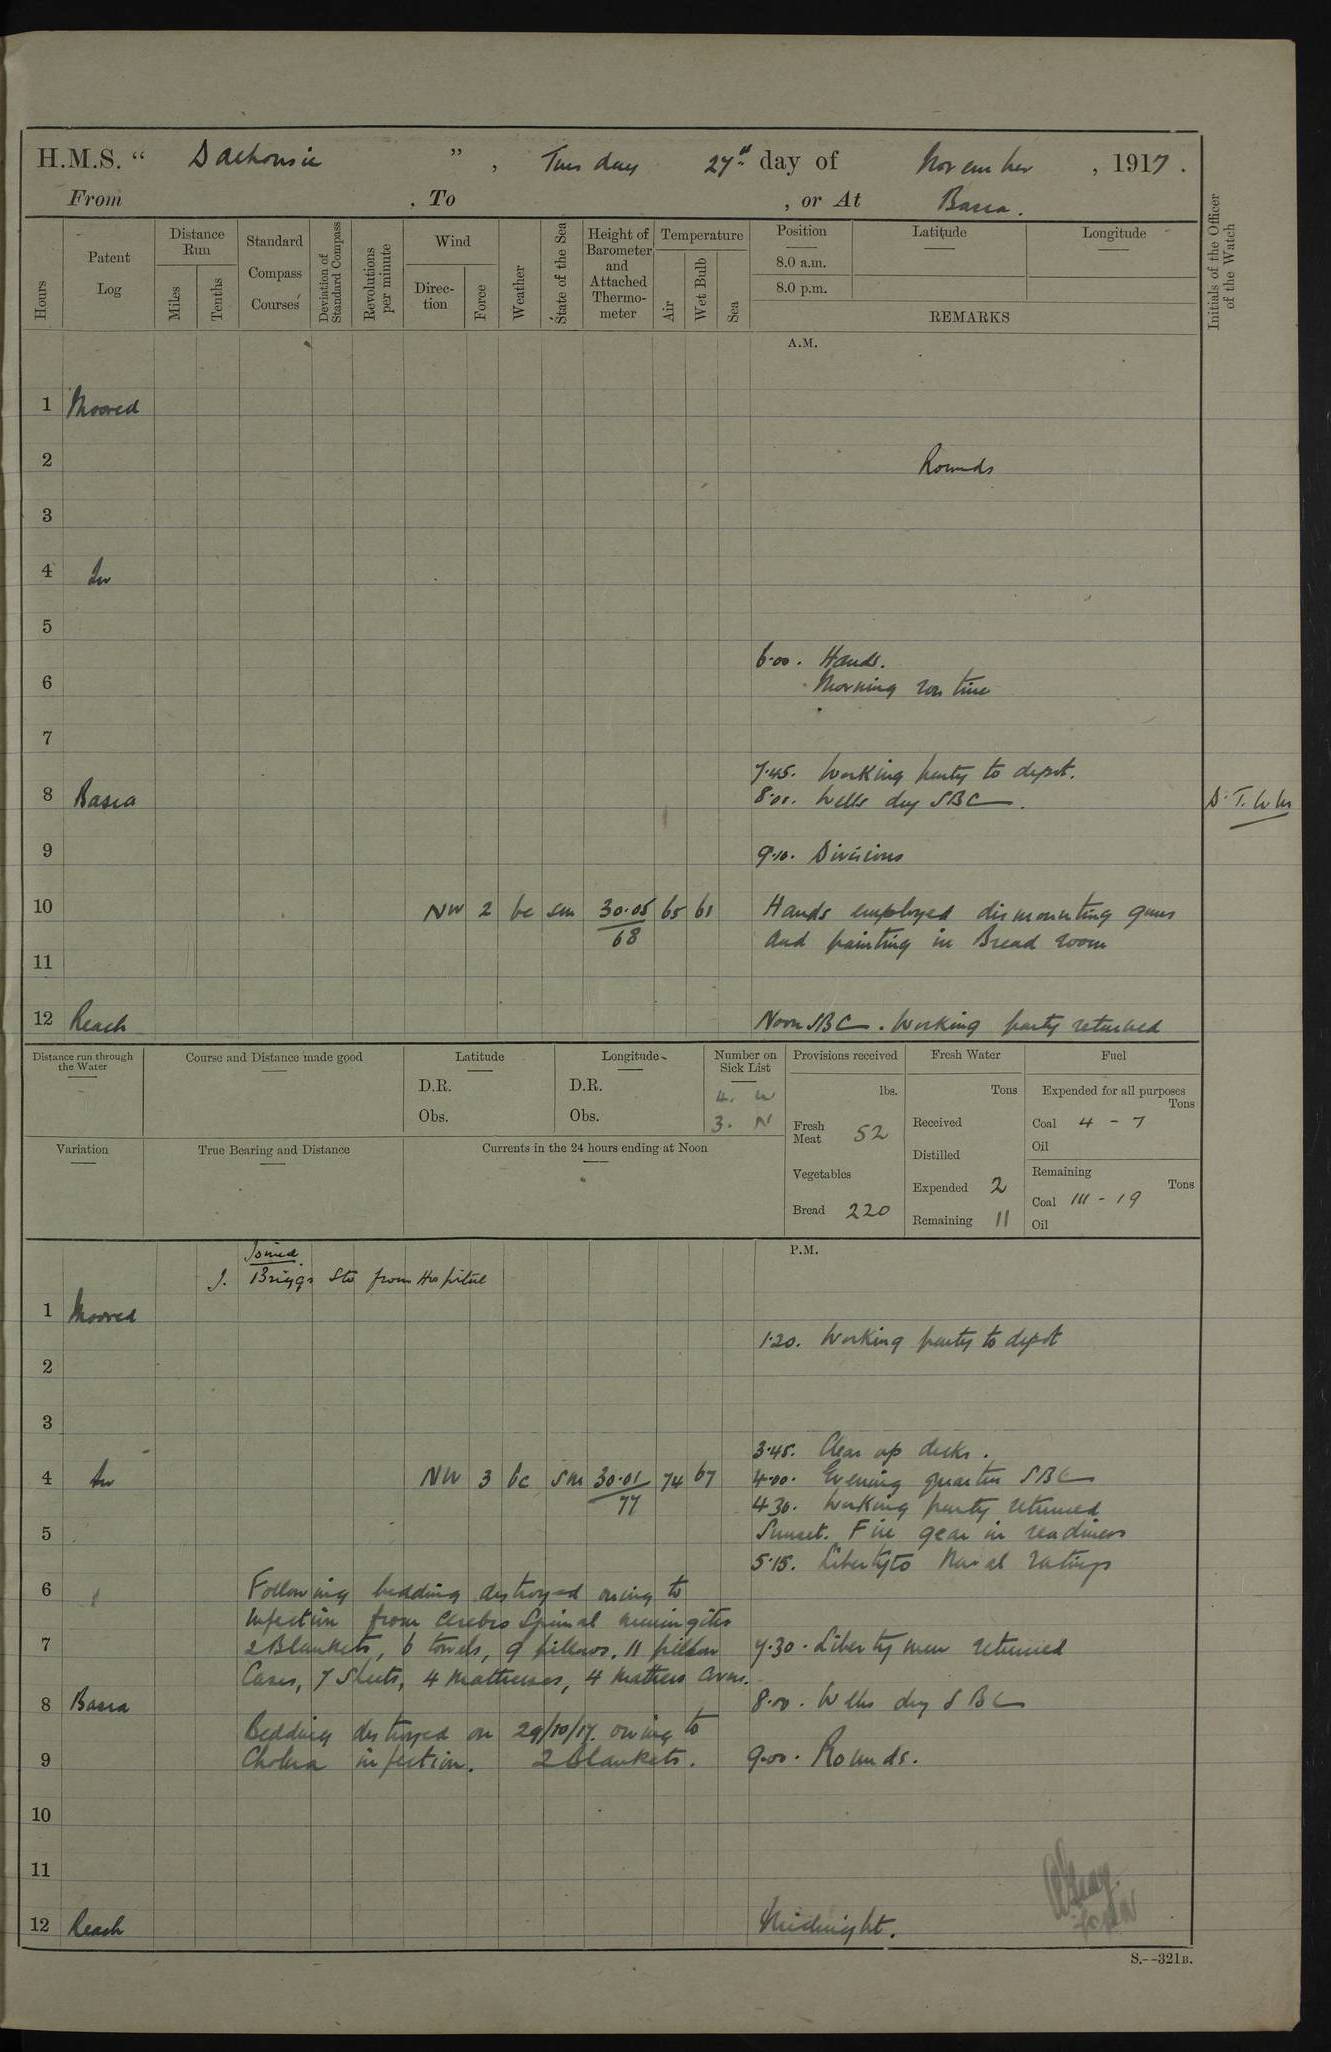 H.M.S. " Dalhousie ", Tuesday 27th day of November, 1917.
From , To , or At Basra.
Hours
Patent Log
Distance Run
Miles
Tenths
Standard Compass Courses
Deviation of Standard Compass
Revolutions per minute
Wind
Direction
Force
Weather
State of the Sea
Height of Barometer and Attached Thermometer
Temperature
Air
Wet Bulb
Sea
Position
8.0 a.m.
8.0 p.m.
Latitude
Longitude
REMARKS
Initials of the Officer of the Watch
A.M.
1 Moored
2 Rounds
3
4 In
5
6.00. Hands.
6 Morning routine
7
7.45. Working party to depot.
8 Basra 8.00. Wells dry SBC.
9 9.10. Divisions
10 NW 2 bc sm 30.05 65 61 Hands employed dismounting guns
68 and painting in Bread room
11
12 Reach Noon SBC. Working party returned
Distance run through the Water
Course and Distance made good
Latitude
D.R.
Obs.
Longitude
D.R.
Obs.
Number on Sick List
4. W
3. N
Provisions received
lbs.
Fresh Meat 52
Vegetables
Bread 220
Fresh Water
Tons
Received
Distilled
Expended 2
Remaining 11
Fuel
Expended for all purposes
Tons
Coal 4 - 7
Oil
Remaining
Tons
Coal 111 - 19
Oil
Variation
True Bearing and Distance
Currents in the 24 hours ending at Noon
P.M.
Joined
J. Briggs Sto from Hospital
1 Moored
1.20. Working party to depot
2
3
3.45. Clear up decks.
4 In NW 3 bc sm 30.01 74 67 4.00. Evening quarters SBC
77 4.30. Working party returned
5 Sunset. Fire gear in readiness
5.15. Liberty to Naval ratings
6 Following bedding destroyed owing to
infection from Cerebro Spinal meningitis
7 2 Blankets, 6 towels, 9 pillows, 11 pillow 7.30. Liberty men returned
Cases, 7 Sheets, 4 Mattresses, 4 Mattress Covers.
8 Basra 8.00. Wells dry SBC
Bedding destroyed on 29/10/17 owing to
9 Cholera infection. 2 Blankets. 9.00. Rounds.
10
11
12 Reach Midnight.
S.--321B.